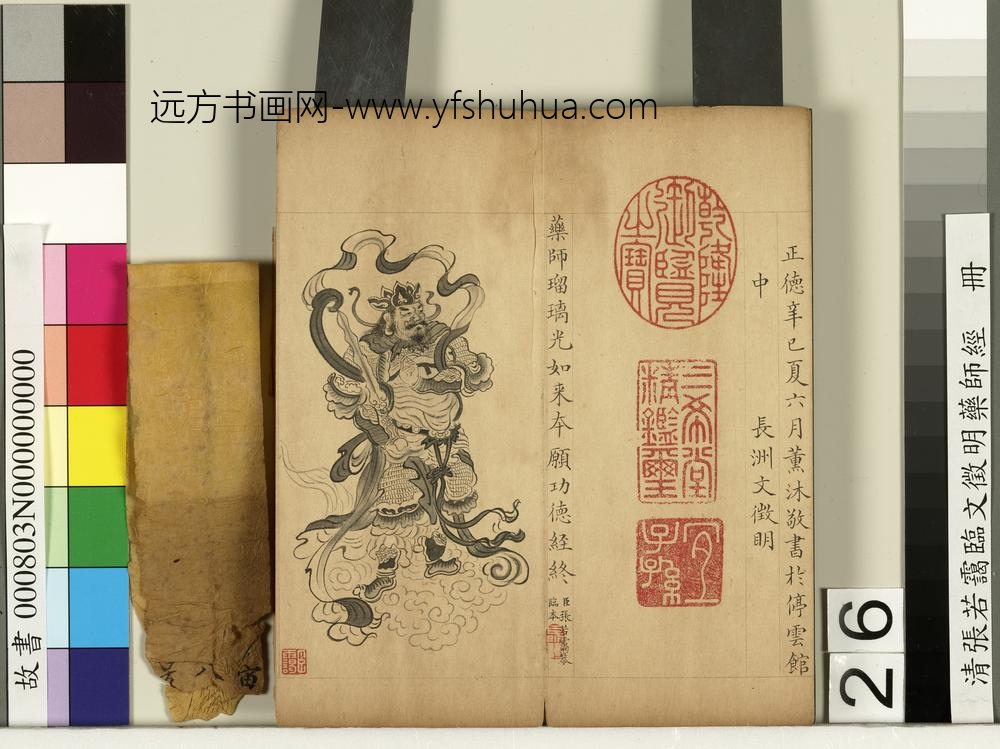 远方书画网-www.yfshuhua.com
正德辛巳夏六月薰沐敬書於停雲館
中　長洲文徵明
乾隆御覽之寶
三希堂精鑑璽
宜子孫
藥師瑠璃光如来本願功德經終
臣張若靄摹
臨本
寅八号
故書 000803N000000000
清張若靄臨文徵明藥師經 冊
26